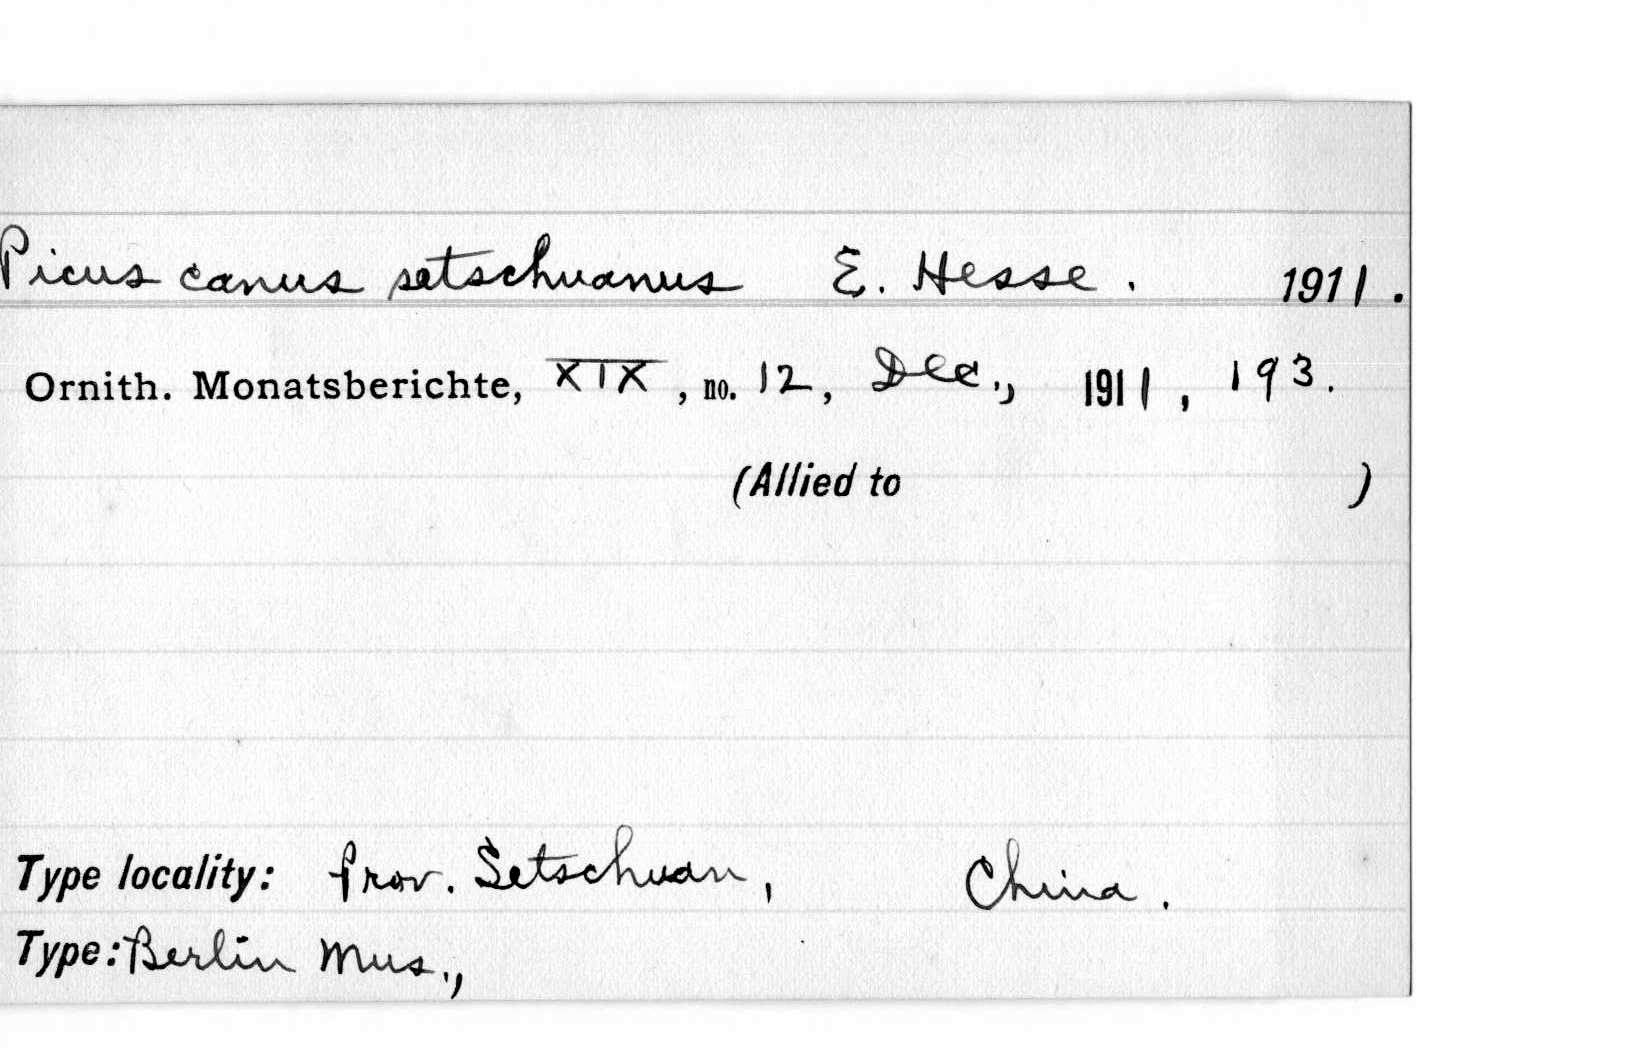 Picus canus setschuanus E. Hesse. 1911.
Ornith. Monatsberichte, XIX, no. 12, Dec., 1911, 193.
(Allied to )
Type locality: Prov. Setschuan, China.
Type: Berlin Mus.,